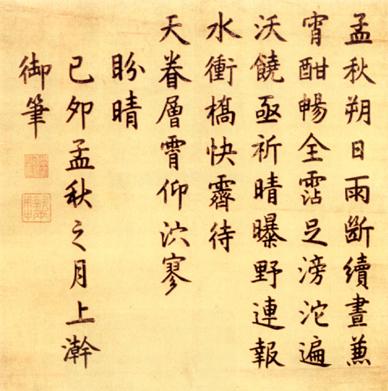 孟秋朔日雨斷續晝兼
宵酣暢全霑足滂沱遍
沃饒亟祈晴曝野連報
水衝橋快霽待
天眷層霄仰泬寥
盼晴
己卯孟秋之月上澣
御筆